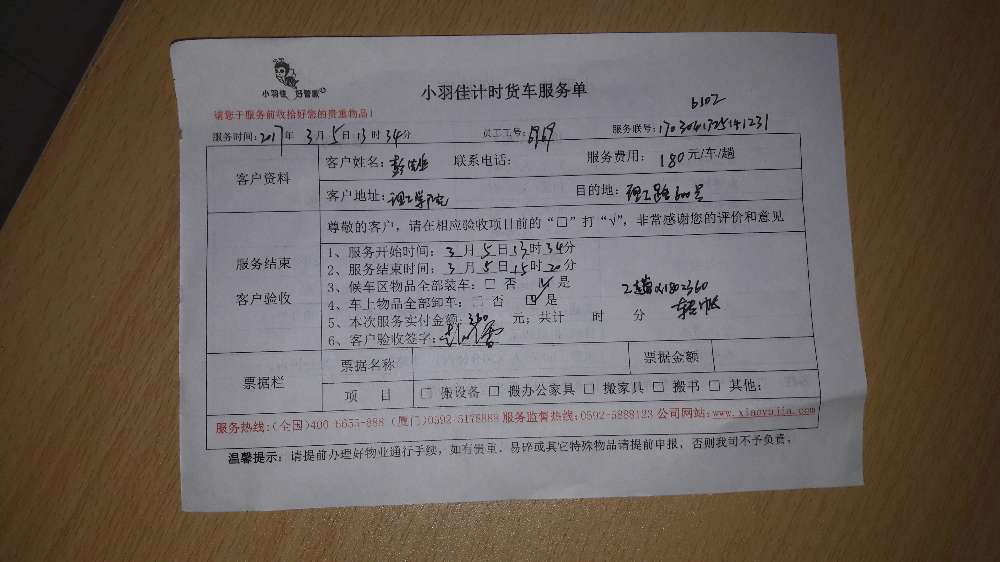 小羽佳 好管家
小羽佳计时货车服务单
6102
请您于服务前收拾好您的贵重物品!
服务时间:2017年 3月5日13时34分 员工工号:6969 服务联号:
客户资料
客户姓名: 联系电话: 服务费用: 180元/车/趟
客户地址:理工学院 目的地: 理工路600号
尊敬的客户,请在相应验收项目前的“□”打“√”,非常感谢您的评价和意见
服务结束
客户验收
1、服务开始时间: 3月5日13时34分
2、服务结束时间: 3月5日15时20分
3、候车区物品全部装车:□ 否 ☑ 是
4、车上物品全部卸车:□ 否 ☑ 是
2趟×180=360
5、本次服务实付金额:360 元;共计 时 分
6、客户验收签字:
票据栏
票据名称 票据金额
项 目 □ 搬设备 □ 搬办公家具 □ 搬家具 □ 搬书 □ 其他:
服务热线:(全国)400-6655-888 (厦门)0592-5178889 服务监督热线:0592-5888123 公司网站:www.xiaoyujia.com
温馨提示:请提前办理好物业通行手续,如有贵重、易碎或其它特殊物品请提前申报,否则我司不予负责。